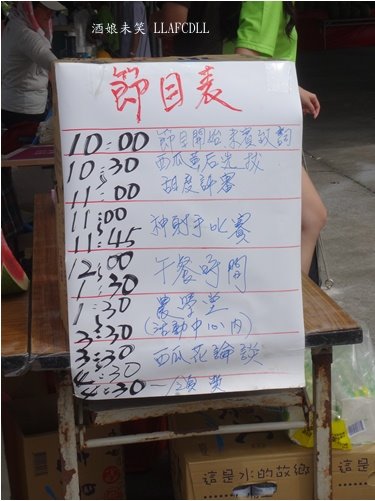 酒娘未笑 LLAFCDLL
節目表
10:00 節目開始 來賓致詞
10:30 西瓜皇后选拔
11:00 甜度評審
11:00
神射手比賽
11:45
12:00 午餐時間
1:30
1:30 農學堂
3:30 (活動中心內)
3:30 西瓜花論談
4:30
4:30 — 頒獎
這是水的故鄉
這是